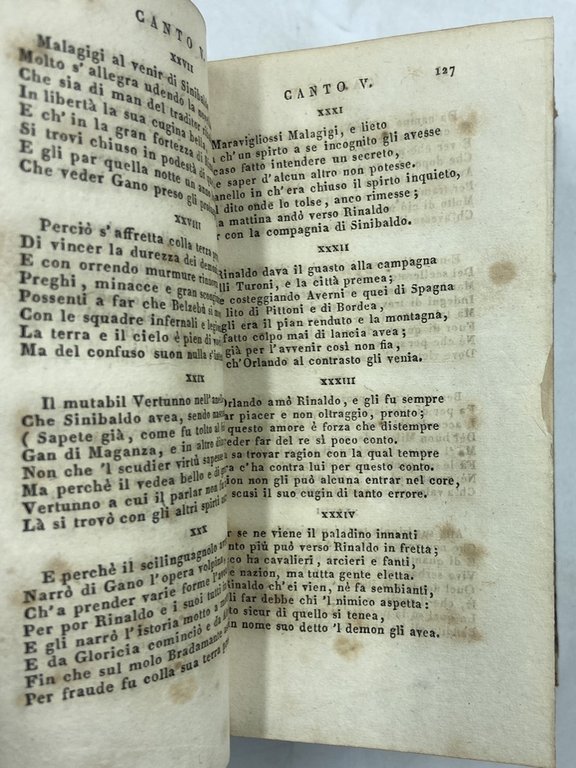 CANTO V.
XXVII
Malagigi al venir di Sinibaldo
Molto s' allegra udendo la
Che sia di man del traditor
In libertà la sua cugina bella
E ch' in la gran fortezza di
Si trovi chiuso in podestà di
E gli par quella notte un anno
Che veder Gano preso gli
XXVIII
Perciò s' affretta colla terra
Di vincer la durezza dei
E con orrendo murmure
Preghi, minacce e gran
Possenti a far che Belzebù si
Con le squadre infernali e
La terra e il cielo è pien di
Ma del confuso suon nulla s'
XXIX
Il mutabil Vertunno nell'
Che Sinibaldo avea, sendo
( Sapete già, come fu tolto al
Gan di Maganza, e in altro
Non che 'l scudier virtù sapesse
Ma perchè il vedea bello e di
Vertunno a cui il parlar non
Là si trovò con gli altri spirti
XXX
E perchè il scilinguagnolo
Narrò di Gano l' opera
Ch' a prender varie forme
Per por Rinaldo e i suoi tutti
E gli narrò l' istoria motto a
E da Gloricia cominciò e da
Fin che sul molo Bradamante
Per fraude fu colla sua terra
CANTO V. 127
XXXI
Maravigliossi Malagigi, e lieto
ch' un spirto a se incognito gli avesse
caso fatto intendere un secreto,
e saper d' alcun altro non potesse.
anello in ch' era chiuso il spirto inquieto,
l dito onde lo tolse, anco rimesse;
a mattina andò verso Rinaldo
r con la compagnia di Sinibaldo.
XXXII
Rinaldo dava il guasto alla campagna
lli Turoni, e la città premea;
costeggiando Averni e quei di Spagna
lito di Pittoni e di Bordea,
gli era il pian renduto e la montagna,
fatto colpo mai di lancia avea;
già per l' avvenir così non fia,
ch' Orlando al contrasto gli venia.
XXXIII
Orlando amò Rinaldo, e gli fu sempre
ar piacer e non oltraggio, pronto;
questo amore è forza che distempre
eder far del re sì poco conto.
sa trovar ragion con la qual tempre
ra c' ha contra lui per questo conto.
ion non gli può alcuna entrar nel core,
scusi il suo cugin di tanto errore.
XXXIV
r se ne viene il paladino innanti
nto più può verso Rinaldo in fretta;
co ha cavalieri, arcieri e fanti,
e nazion, ma tutta gente eletta.
Rinaldo ch' ei vien, nè fa sembianti,
li far debbe chi 'l nimico aspetta:
to sicur di quello si tenea,
in nome suo detto 'l demon gli avea.